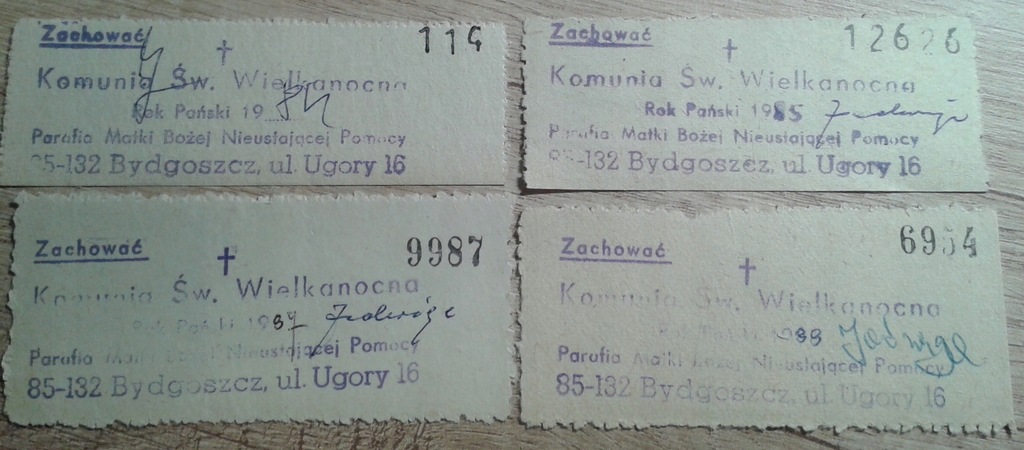 Zachować 114
†
Komunia Św. Wielkanocna
Rok Pański 19 84
Parafia Matki Bożej Nieustającej Pomocy
85-132 Bydgoszcz, ul. Ugory 16
Zachować 12626
†
Komunia Św. Wielkanocna
Rok Pański 1985 Jadwiga
Parafia Matki Bożej Nieustającej Pomocy
85-132 Bydgoszcz, ul. Ugory 16
Zachować 9987
†
Komunia Św. Wielkanocna
Rok Pański 1987 Jadwiga
Parafia Matki Bożej Nieustającej Pomocy
85-132 Bydgoszcz, ul. Ugory 16
Zachować 6954
†
Komunia Św. Wielkanocna
Rok Pański 1988 Jadwiga
Parafia Matki Bożej Nieustającej Pomocy
85-132 Bydgoszcz, ul. Ugory 16